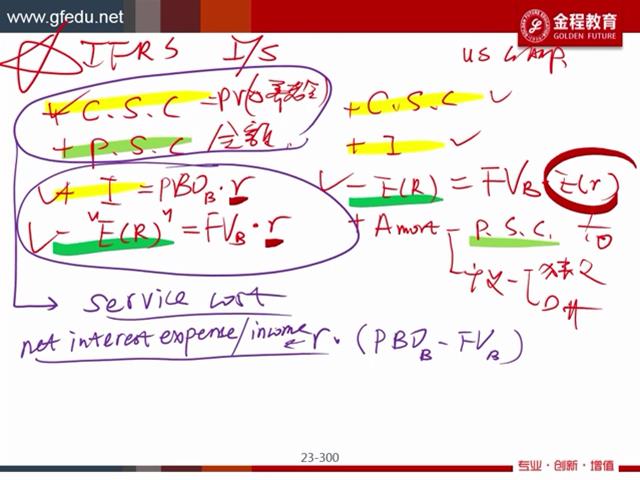 www.gfedu.net
金程教育
GOLDEN FUTURE
IFRS I/S
US GAAP
+ C.S.C = PV(养老金)
+ C.S.C ✓
+ P.S.C 全额
+ I ✓
✓ + I = PBO_B · r
✓ - E(R) = FV_B · E(r)
✓ - "E(R)" = FV_B · r
+ Amort - P.S.C.
Diff
service cost
net interest expense/income ← r · (PBO_B - FV_B)
23-300
专业·创新·增值